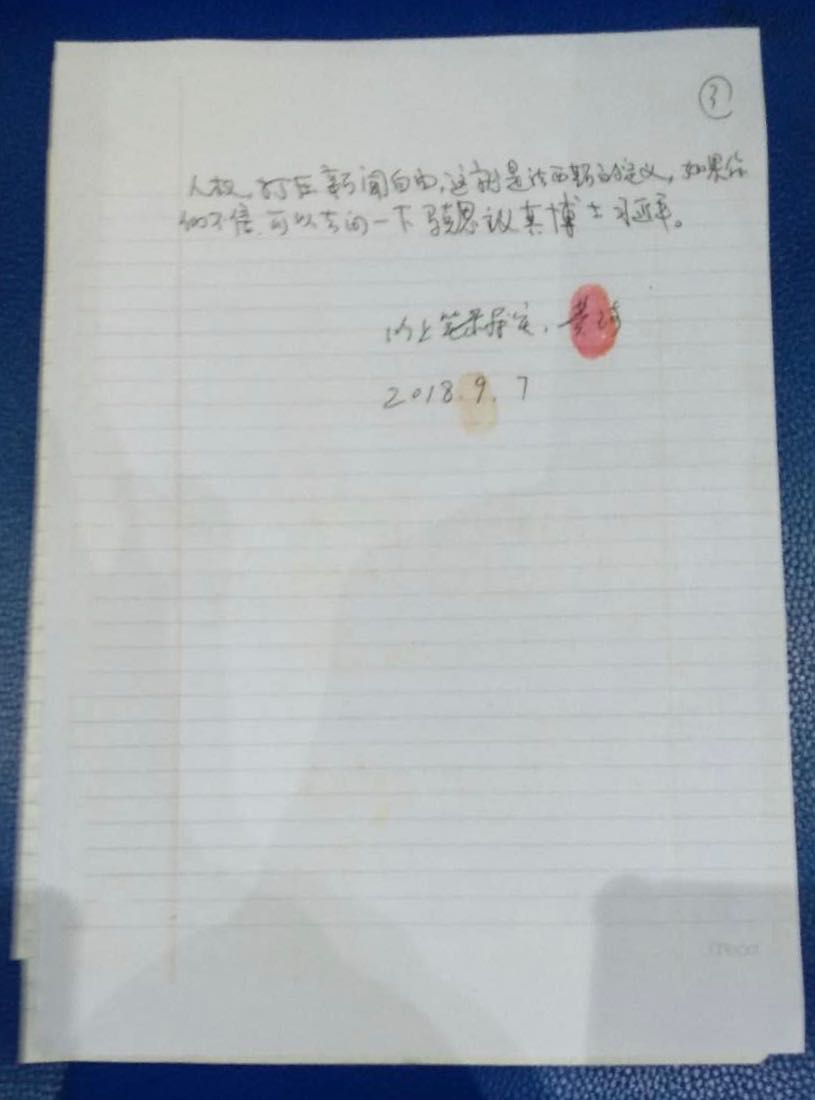 ③
人权,打压新闻自由,这就是法西斯的定义,如果你
们不信,可以去问一下 议真博士习近平。
以上笔录属实,黄琦
2018.9.7